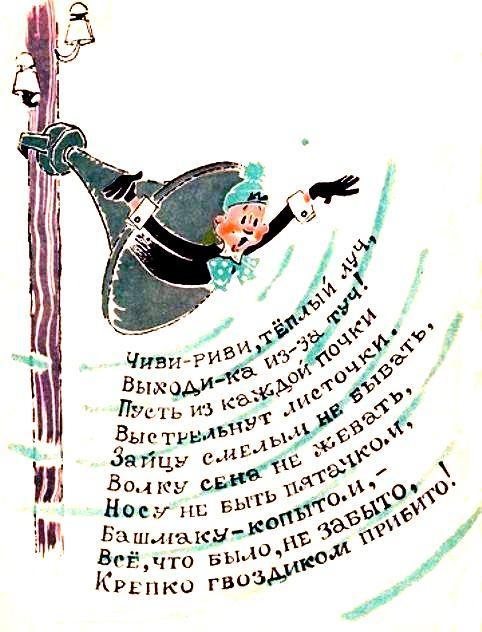 Чиви-риви, тёплый луч,
Выходи-ка из-за туч!
Пусть из каждой почки
Выстрельнут листочки.
Зайцу смелым не бывать,
Волку сена не жевать,
Носу не быть пятачком,
Башмаку-копытом,-
Всё, что было, не забыто,
Крепко гвоздиком прибито!